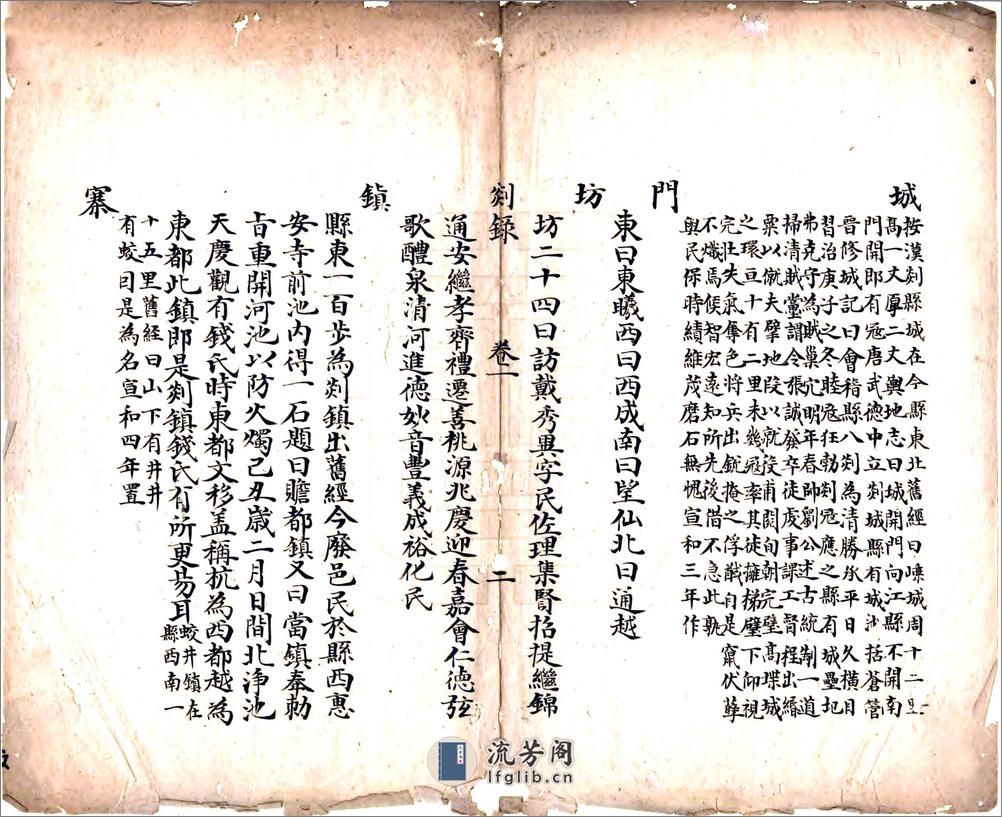 城
按漢剡縣城在今縣東北舊經曰嵊城周十二里
高一丈厚二丈輿地志曰城開門向江縣不開南
門開郎有寇唐武德中立剡城縣有城沙括蒼管
晉修城記曰會稽縣八剡為清勝承平日久橫目
習治庚子之冬睦寇狂勃剡寇應之縣有城壘圮
弗克守為賊巢穴明年春帥劉公述古統制一道
掃清賊黨謂令張誠發卒徒度事謀工督程出緡
粟以僦夫擘地段以就役甫閱旬朝完壁高堞城
之環亘十有二里未幾寇率其徒擁梯壁下仰視
完壯失氣奪色將兵出銳掩之俘馘自是竄伏孽
不熾焉侯智宏遠知所先後惜不急此孰
與民保時績維茂磨石無愧宣和三年作
門
東曰東曦西曰西成南曰望仙北曰通越
坊
坊二十四曰訪戴秀異字民佐理集賢招提繼錦
剡錄 卷一 二
通安繼孝齊禮遷善桃源兆慶迎春嘉會仁德弦
歌醴泉清河進德妙音豐義成裕化民
鎮
縣東一百步為剡鎮出舊經今廢邑民於縣西惠
安寺前池內得一石題曰贍都鎮又曰當鎮奉勅
旨重開河池以防火燭己丑歲二月日間北淨池
天慶觀有錢氏時東都文移盖稱杭為西都越為
東都此鎮即是剡鎮錢氏有所更易耳蛟井鎮在
縣西南一
十五里舊經曰山下有井井
有蛟因是為名宣和四年置
寨
流芳阁
lfglib.cn